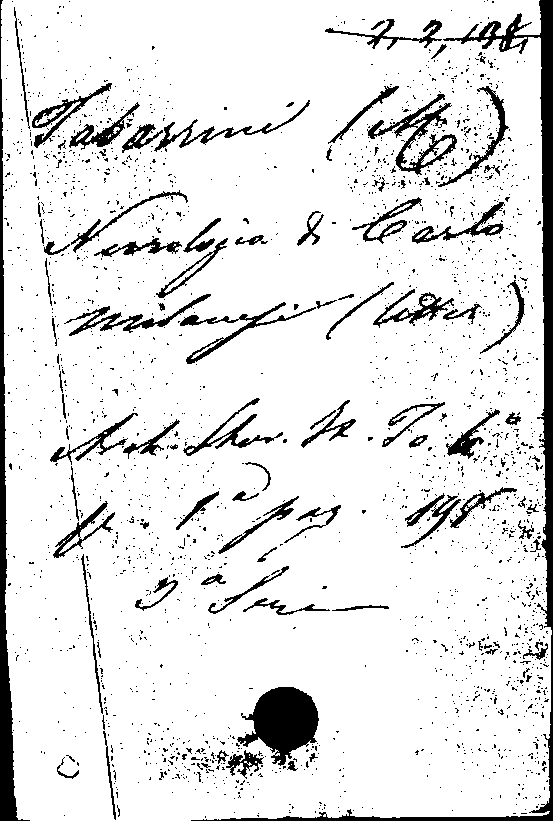 2, 2, 198,
Tabarrini (M)
Necrologia di Carlo
Milanesi (letter)
Arch. Stor. It. To. 6°
p. 1ª pag. 198
3ª Serie